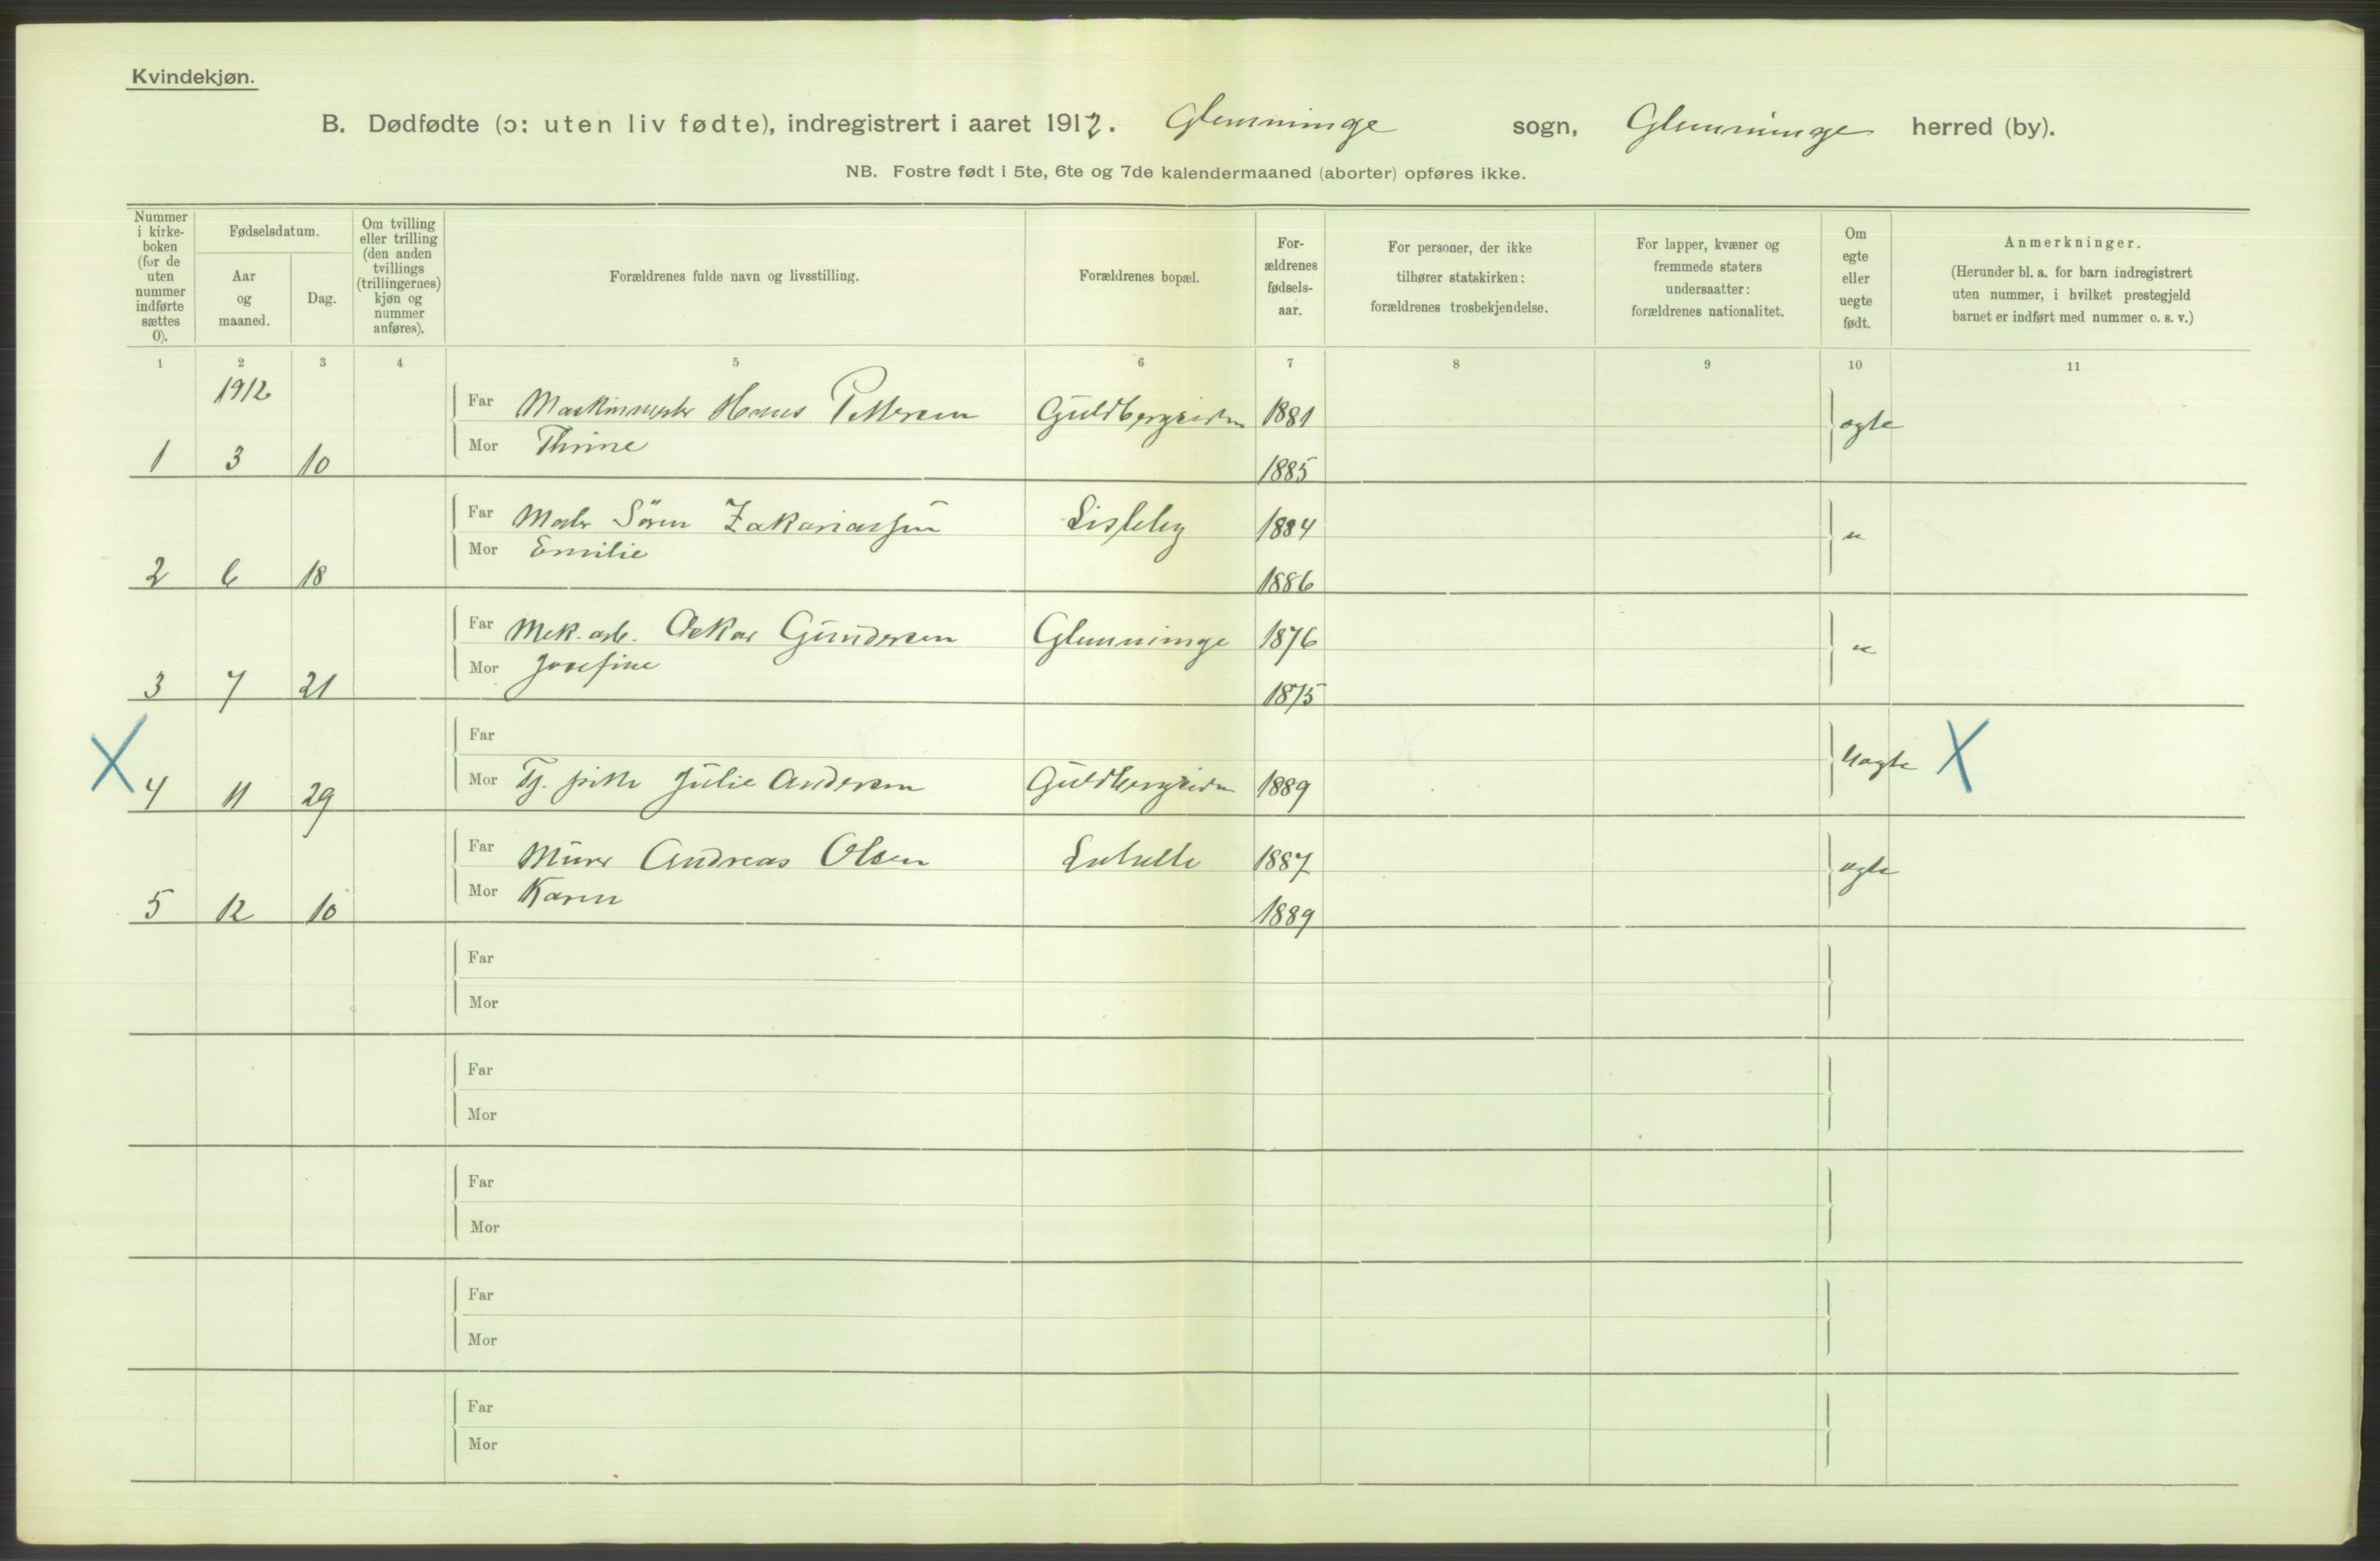 Kvindekjøn.
B. Dødfødte (ɔ: uten liv fødte), indregistrert i aaret 1912. Glemminge sogn, Glemminge herred (by).
NB. Fostre født i 5te, 6te og 7de kalendermaaned (aborter) opføres ikke.
Nummer
i kirke-
boken
(for de
uten
nummer
indførte
sættes
0).
Fødselsdatum.
Aar
og
maaned.
Dag.
Om tvilling
eller trilling
(den anden
tvillings
(trillingernes)
kjøn og
nummer
anføres).
Forældrenes fulde navn og livsstilling.
Forældrenes bopæl.
For-
ældrenes
fødsels-
aar.
For personer, der ikke
tilhører statskirken:
forældrenes trosbekjendelse.
For lapper, kvæner og
fremmede staters
undersaatter:
forældrenes nationalitet.
Om
egte
eller
uegte
født.
Anmerkninger.
(Herunder bl. a. for barn indregistrert
uten nummer, i hvilket prestegjeld
barnet er indført med nummer o. s. v.)
1 2 3 4 5 6 7 8 9 10 11
1912
Far Maskinmester Hans Pettersen 1881 ægte
Mor Thrine
1 3 10 1885
Far Maler Søren Zakariassen Lisleby 1884 "
Mor Emilie
2 6 18 1886
Far Mek. arb. Oskar Gundersen Glemminge 1876 "
Mor Josefine
3 7 21 1875
Far
X Uægte X
4 11 29 Mor Tj. pike Julie Andersen 1889
Far Murer Andreas Olsen 1887 ægte
Mor Karen
5 12 10 1889
Far
Mor
Far
Mor
Far
Mor
Far
Mor
Far
Mor